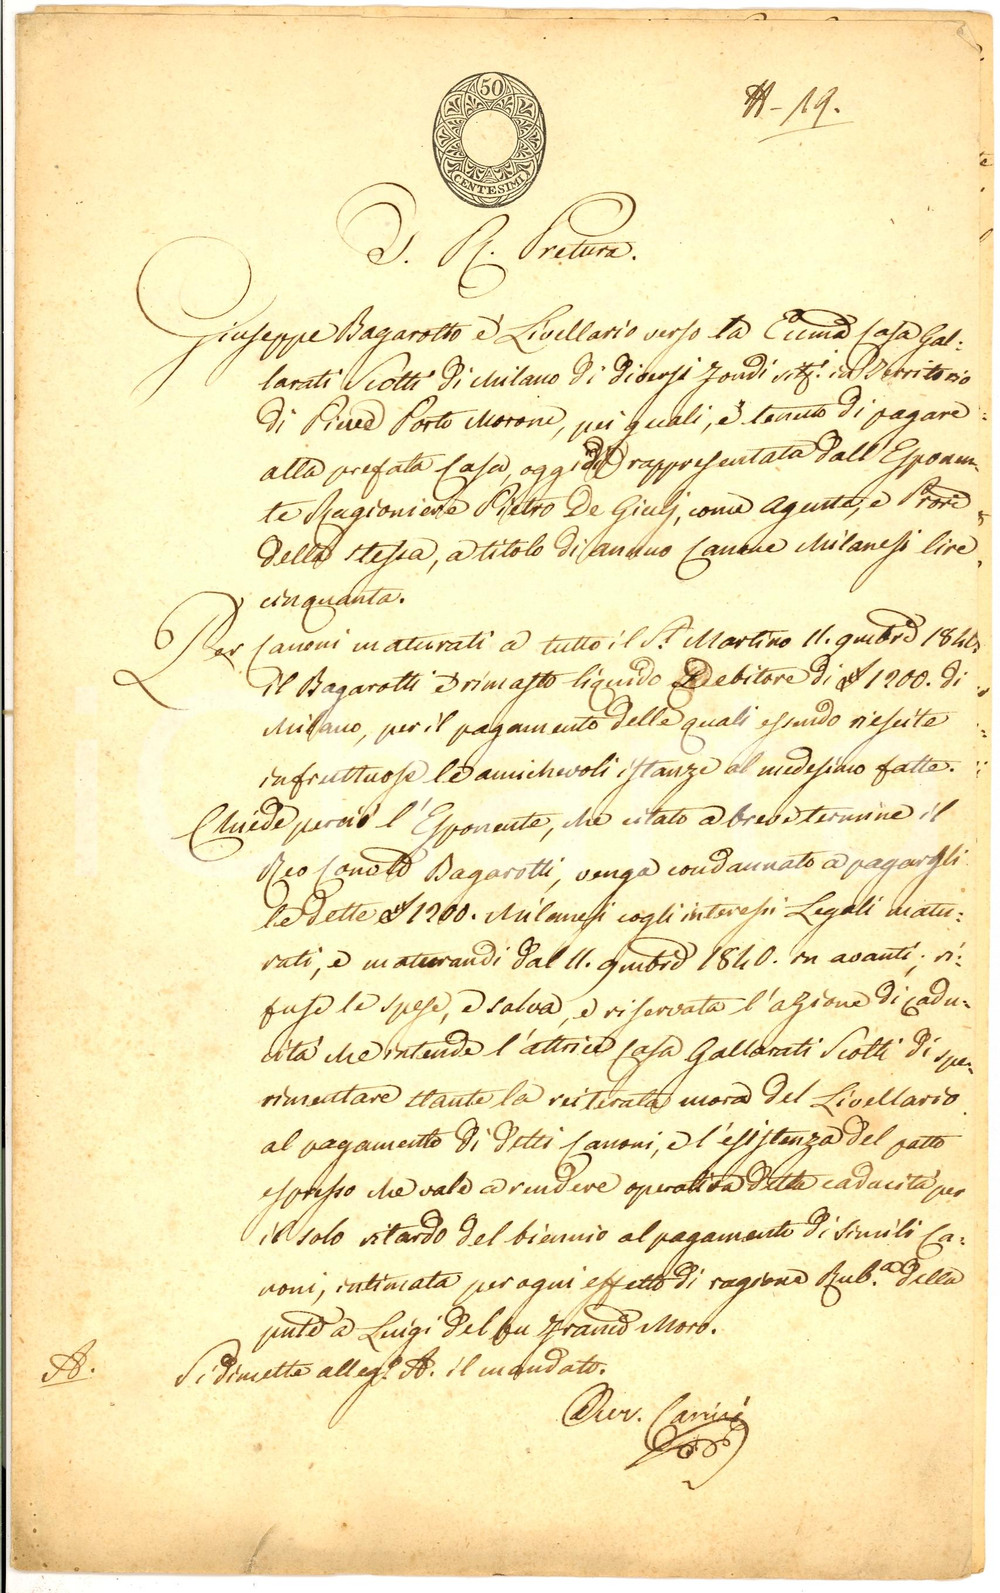 50
CENTESIMI
A-19.
I. R. Pretura.
Giuseppe Bagarotto è Livellario verso la Ecc.ma Casa Gal:
larati Scotti di Milano di diversi fondi siti in Territorio
di Pieve Porto Morone, pei quali, è tenuto di pagare
alla prefata Casa, oggidì rappresentata dall'Esponen=
te Ragioniere Pietro De Giulj, come Agente, e
della stessa, a titolo di annuo Canone Milanesi lire
cinquanta.
Per Canoni maturati a tutto il S. Martino 11. 9mbre 1840.
il Bagarotti è rimasto liquido Debitore di £ 1200. di
Milano, per il pagamento delle quali essendo riescite
infruttuose le amichevoli istanze al medesimo fatte.
Chiede perciò l'Esponente, che citato a breve termine il
Reo Conv.to Bagarotti, venga condannato a pagargli
le dette £ 1200. Milanesi cogli interessi Legali matu:
rati, e maturandi dal 11. 9mbre 1840. in avanti; ri:
fuse le spese, e salva, e riservata l'azione di cadu=
cità che intende l'attrice Casa Gallarati Scotti di spe=
rimentare stante la reiterata mora del Livellario
al pagamento di detti Canoni, e l'esistenza del patto
espresso che vale a rendere operativa detta caducità per
il solo ritardo del biennio al pagamento di simili Ca:
noni, intimata per ogni effetto di ragione Rub.a della
pnte a Luigi del fu Franco Moro.
A. Si dimette alleg. A. il mandato.
Avv. Carini